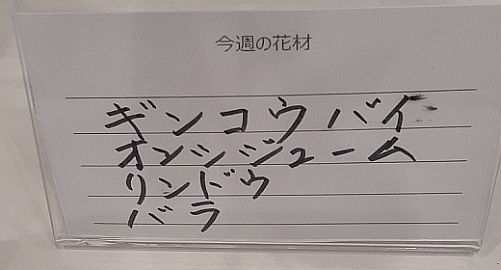 今週の花材
ギンコウバイ
オンシジューム
リンドウ
バラ